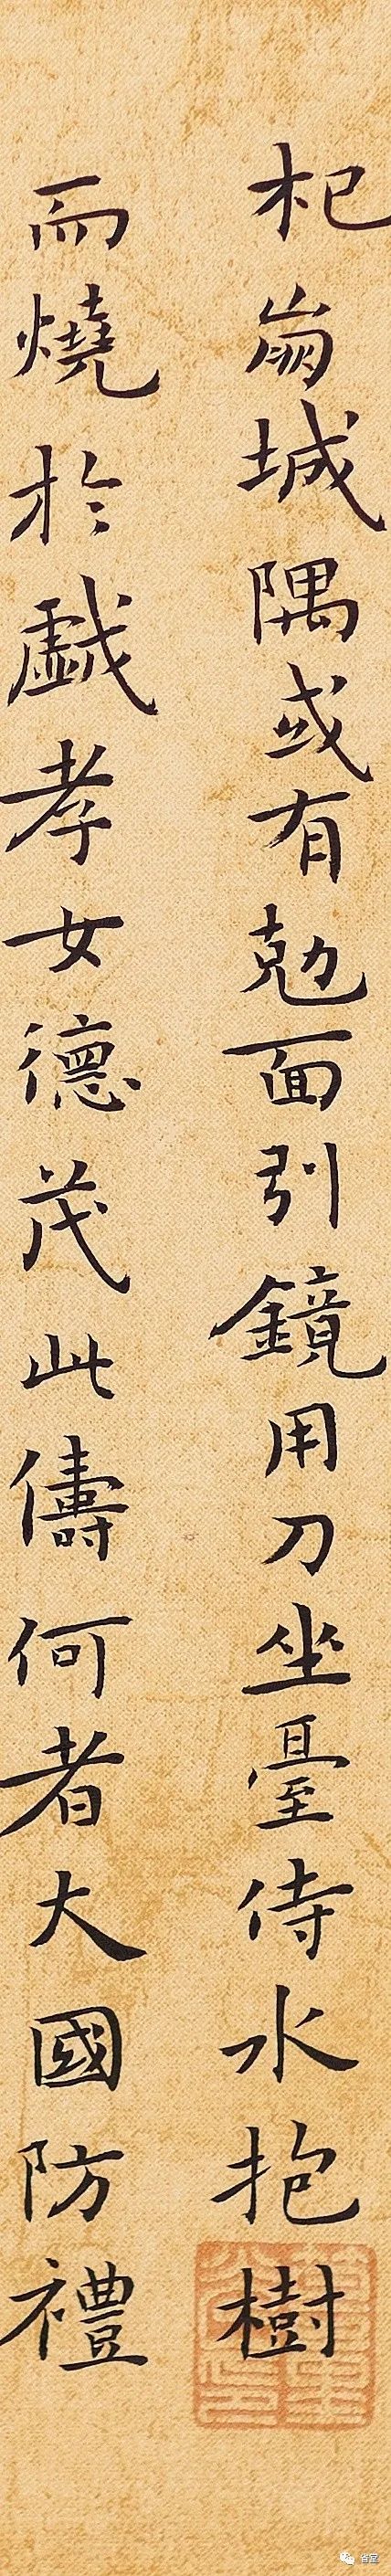 杞崩城隅或有勀面引鏡用刀坐臺待水抱樹
而燒於戱孝女德茂此儔何者大國防禮